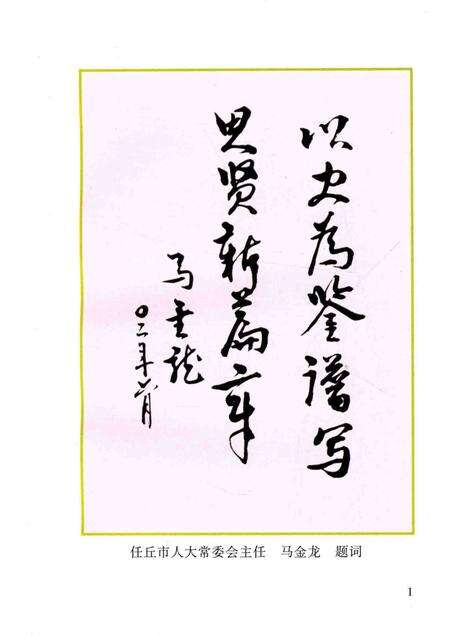 以史為鉴谱写
思贤新篇章
马金龙
〇二年
任丘市人大常委会主任 马金龙 题词
1